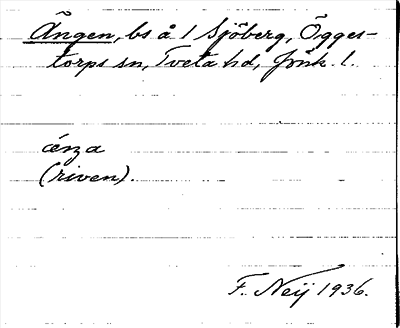 Ängen, bs å 1 Sjöberg, Ögges-
torps sn, Tveta hd, Jönk. l.
ænza
(riven).
F. Neij 1936.